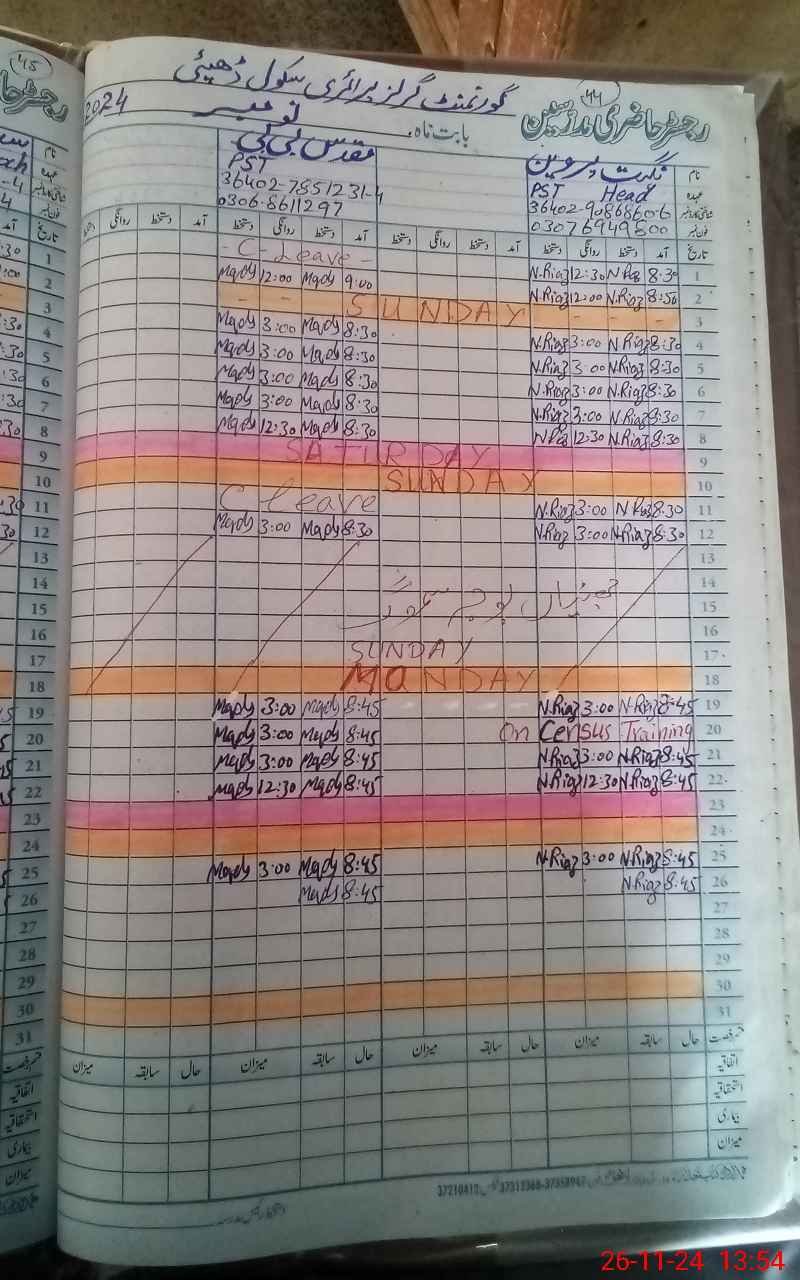 ۴۴
رجسٹر حاضری مدرسین
گورنمنٹ گرلز پرائمری سکول ڈھیئی
بابت ماہ، نومبر 2024
نام نگہت پروین مقدس بی بی
عہدہ PST Head PST
36402-9086860-6 36402-7851231-4
فون نمبر 03076949800 0306-8611297
تاریخ آمد دستخط روانگی دستخط آمد دستخط روانگی دستخط آمد دستخط روانگی دستخط آمد دستخط روانگی دستخط
1 8:30 N.Riaz 12:30 N.Riaz - C-Leave -
2 8:50 N.Riaz 12:00 N.Riaz 9:00 Maqds 12:00 Maqds
3 SUNDAY
4 8:30 N.Riaz 3:00 N.Riaz 8:30 Maqds 3:00 Maqds
5 8:30 N.Riaz 3:00 N.Riaz 8:30 Maqds 3:00 Maqds
6 8:30 N.Riaz 3:00 N.Riaz 8:30 Maqds 3:00 Maqds
7 8:30 N.Riaz 3:00 N.Riaz 8:30 Maqds 3:00 Maqds
8 8:30 N.Riaz 12:30 N.Riaz 8:30 Maqds 12:30 Maqds
9 SATURDAY
10 SUNDAY
11 8:30 N.Riaz 3:00 N.Riaz C leave
12 8:30 N.Riaz 3:00 N.Riaz 8:30 Maqds 3:00 Maqds
13
14 چھٹیاں بوجہ سموگ
15
16
17 SUNDAY
18 MONDAY
19 8:45 N.Riaz 3:00 N.Riaz 8:45 Maqds 3:00 Maqds
20 On Census Training 8:45 Maqds 3:00 Maqds
21 8:45 N.Riaz 3:00 N.Riaz 8:45 Maqds 3:00 Maqds
22 8:45 N.Riaz 12:30 N.Riaz 8:45 Maqds 12:30 Maqds
23
24
25 8:45 N.Riaz 3:00 N.Riaz 8:45 Maqds 3:00 Maqds
26 8:45 N.Riaz 8:45 Maqds
27
28
29
30
31
حال سابقہ میزان حال سابقہ میزان حال سابقہ میزان حال سابقہ میزان
اتفاقیہ
استحقاقیہ
بیماری
میزان
26-11-24 13:54